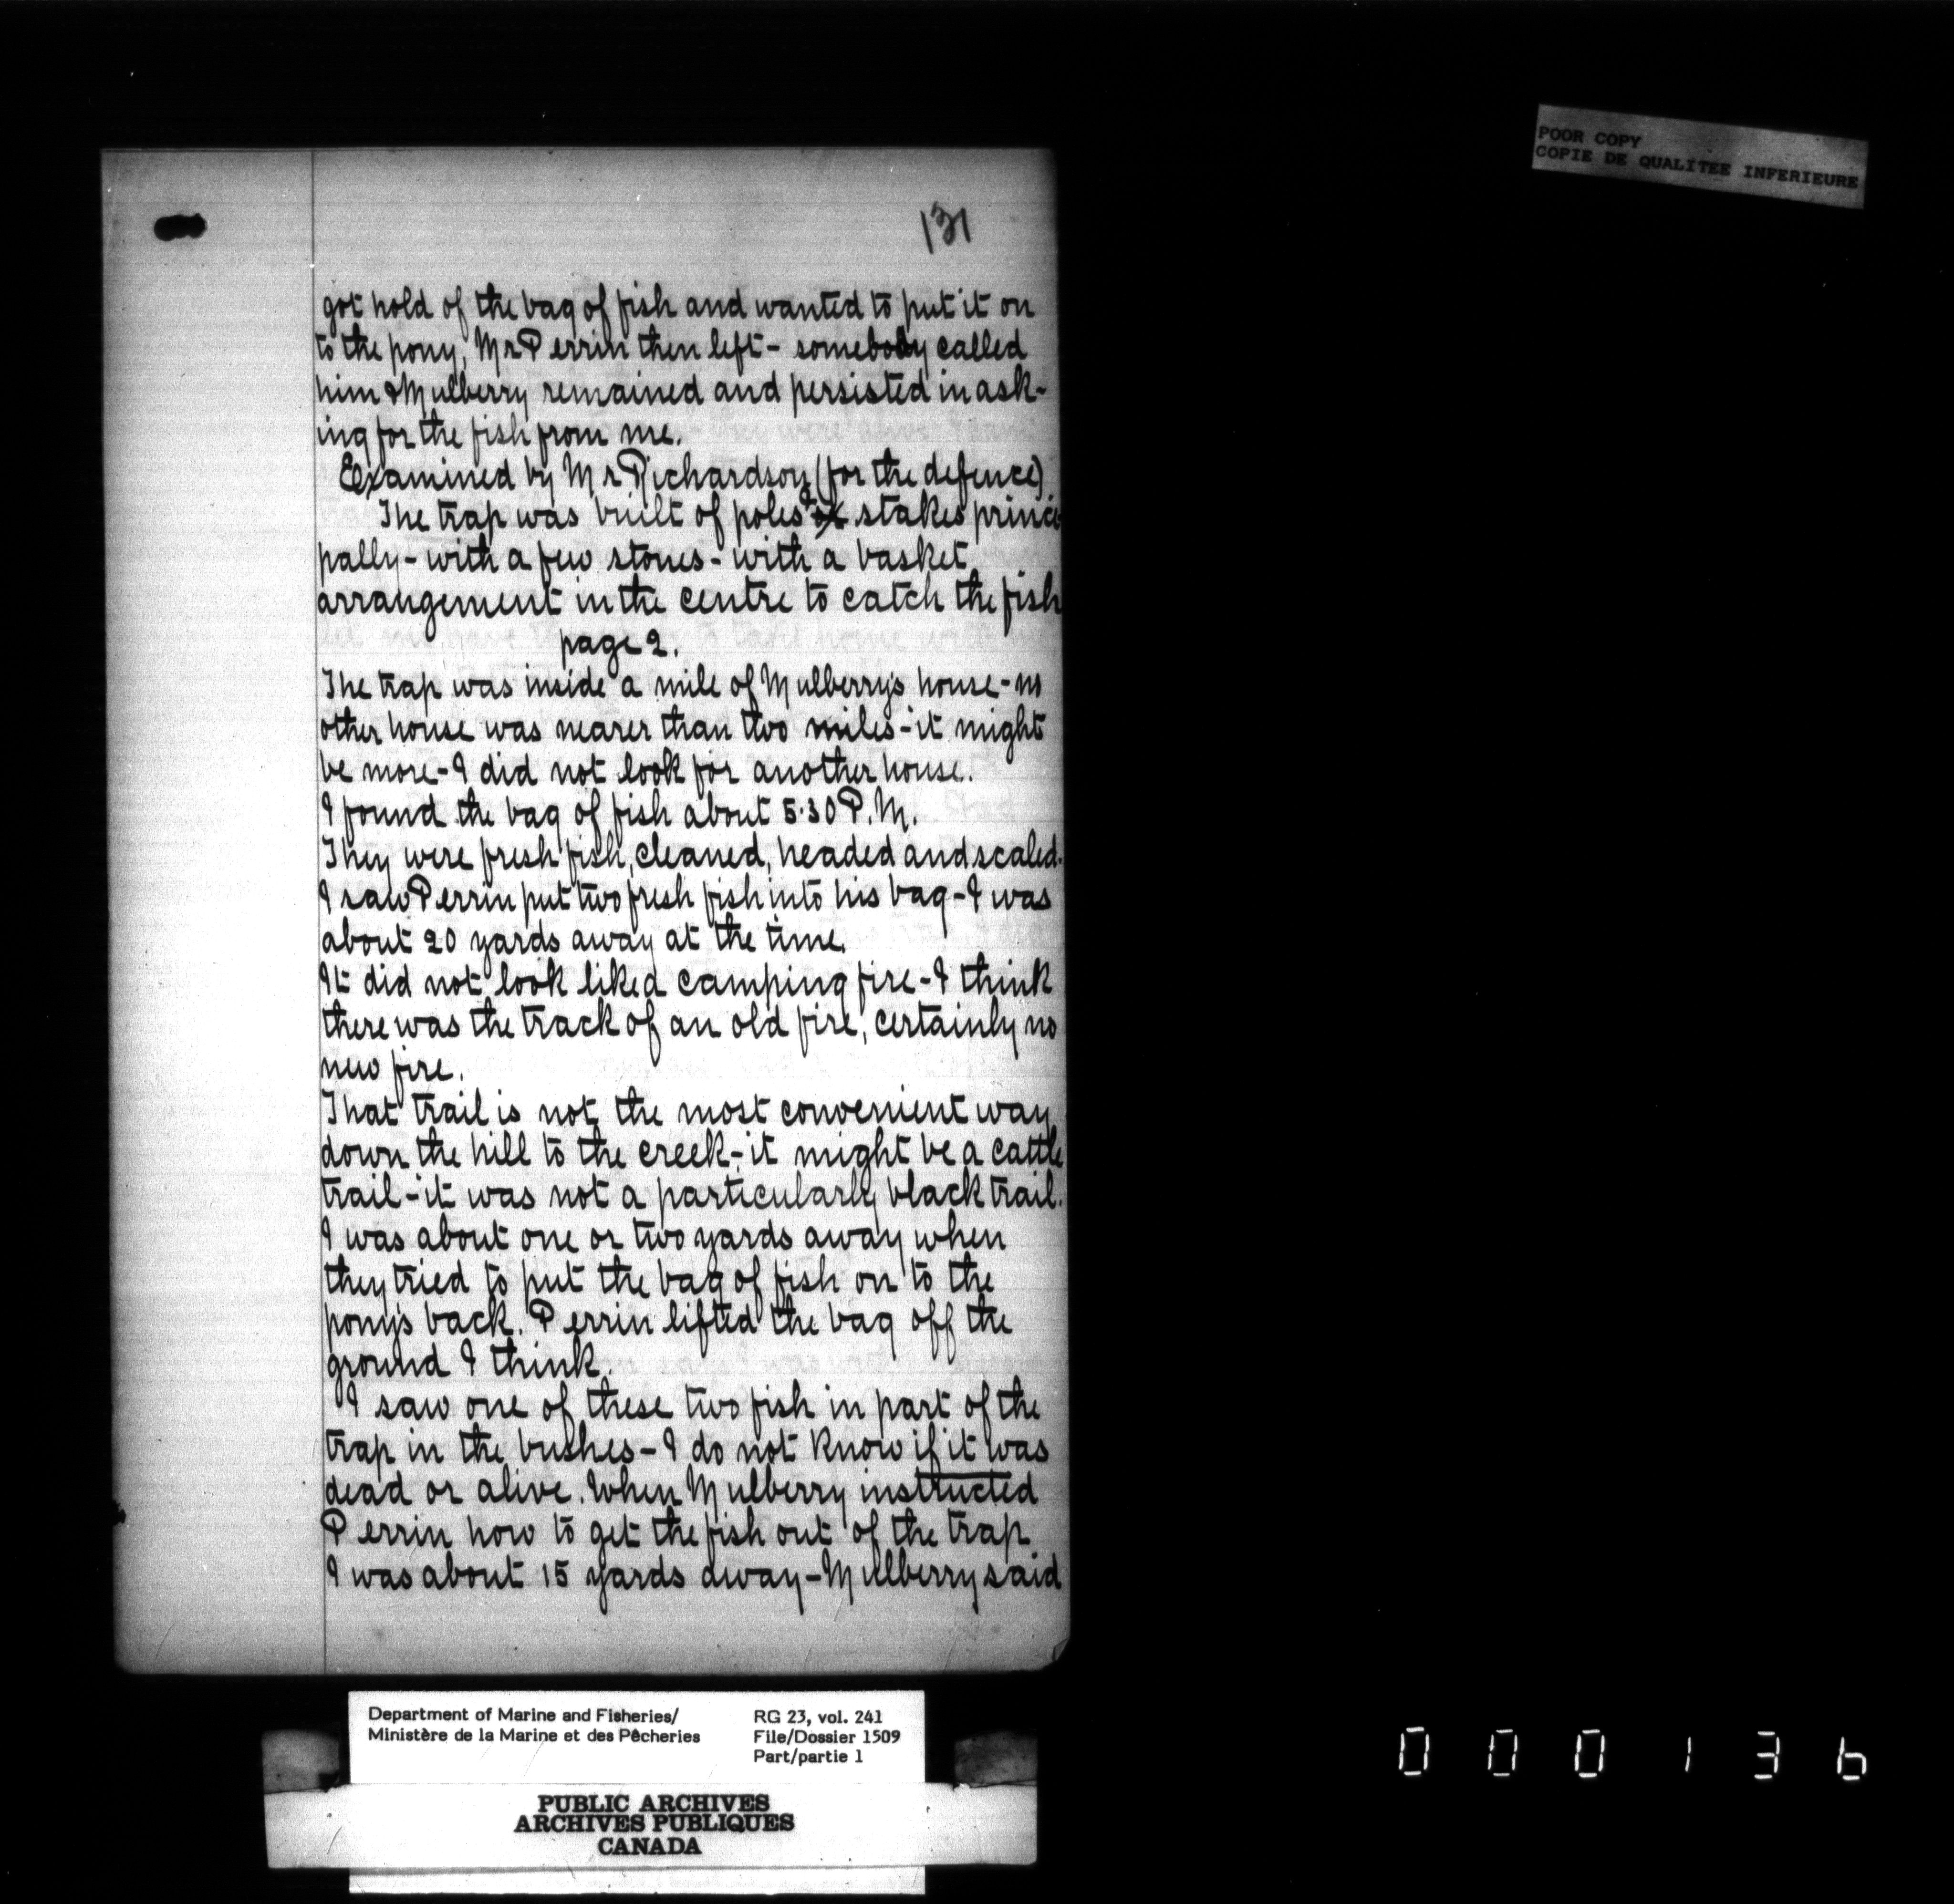 POOR COPY
COPIE DE QUALITEE INFERIEURE
131
got hold of the bag of fish and wanted to put it on
to the pony, Mr Perrin then left - somebody called
him & Mulberry remained and persisted in ask-
ing for the fish from me.
Examined by Mr Richardson (for the defence)
The trap was built of poles & stakes princi-
pally - with a few stones - with a basket
arrangement in the centre to catch the fish
page 2.
The trap was inside a mile of Mulberry's house - no
other house was nearer than two miles - it might
be more - I did not look for another house.
I found the bag of fish about 5.30 P.M.
They were fresh fish, cleaned, headed and scaled.
I saw Perrin put two fresh fish into his bag - I was
about 20 yards away at the time.
It did not look like a camping fire - I think
there was the track of an old fire, certainly no
new fire.
That trail is not the most convenient way
down the hill to the creek - it might be a cattle
trail - it was not a particularly black trail.
I was about one or two yards away when
they tried to put the bag of fish on to the
pony's back. Perrin lifted the bag off the
ground I think.
I saw one of these two fish in part of the
trap in the bushes - I do not know if it was
dead or alive. When Mulberry instructed
Perrin how to get the fish out of the trap
I was about 15 yards away - Mulberry said
Department of Marine and Fisheries/
Ministère de la Marine et des Pêcheries
RG 23, vol. 241
File/Dossier 1509
Part/partie 1
PUBLIC ARCHIVES
ARCHIVES PUBLIQUES
CANADA
000136